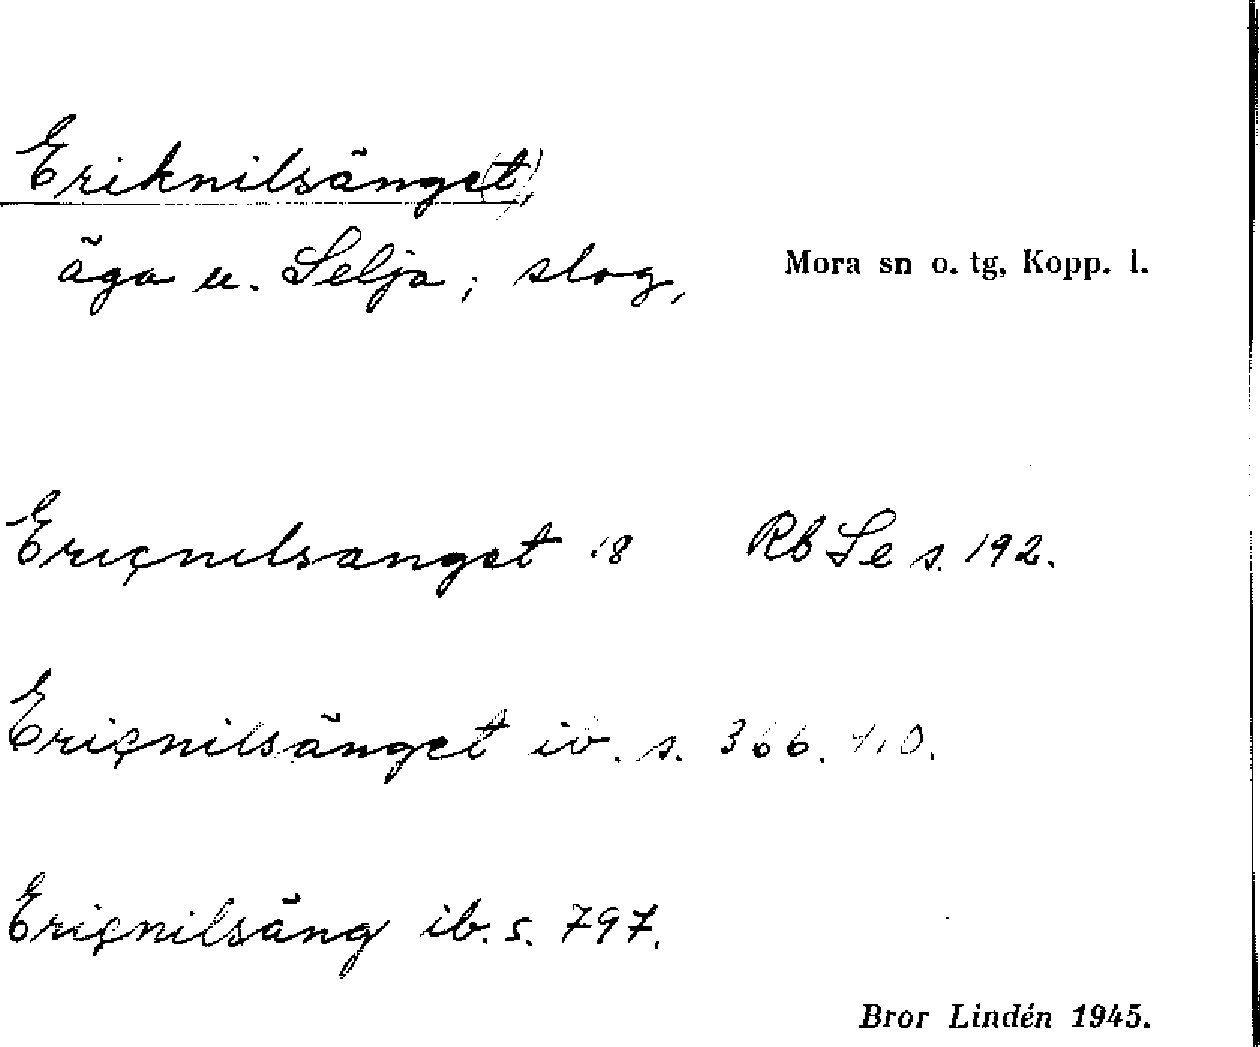 Eriknilsäng(et),
äga u. Selja; slog,
Mora sn o. tg, Kopp. l.
Eriçnilsanget 18 Rb Se s. 192.
Eriçnilsänget ib. s. 366.
Eriçnilsäng ib. s. 797.
Bror Lindén 1945.